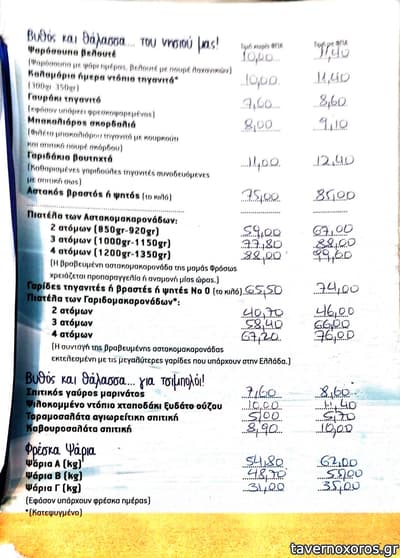 Βυθός και θάλασσα.... του νησιού μας!
Τιμή χωρίς ΦΠΑ Τιμή με ΦΠΑ
Ψαρόσουπα βελουτέ 10,00 11,40
(Ψαρόσουπα με ψάρι ημέρας, βελουτέ με πουρέ λαχανικών)
Καλαμάρια ήμερα ντόπια τηγανιτά* 10,00 11,40
(300gr-350gr)
Γαυράκι τηγανιτό 7,60 8,60
(εφόσον υπάρχει φρεσκοψαρεμένος)
Μπακαλιάρος σκορδαλιά 8,00 9,10
(Φιλέτο μπακαλιάρου τηγανιτό με κουρκούτι
και σπιτική πουρέ σκόρδου)
Γαριδάκια βουτηχτά 11,00 12,40
(Καθαρισμένες γαριδούλες τηγανιτές συνοδευόμενες
με σπιτική σως)
Αστακός βραστός ή ψητός (το κιλό) 75,00 85,00
Πιατέλα των Αστακομακαρονάδων:
2 ατόμων (850gr-920gr) 59,00 67,00
3 ατόμων (1000gr-1150gr) 77,80 88,00
4 ατόμων (1200gr-1350gr) 88,00 99,60
(Η βραβευμένη αστακομακαρονάδα της μαμάς Φρόσως
χρειάζεται προπαραγγελία ή αναμονή μίας ώρας.)
Γαρίδες τηγανιτές ή βραστές ή ψητές Νο 0 (το κιλό) 65,50 74,00
Πιατέλα των Γαριδομακαρονάδων*:
2 ατόμων 40,70 46,00
3 ατόμων 58,40 66,00
4 ατόμων 67,20 76,00
(Η συνταγή της βραβευμένης αστακομακαρονάδας
εκτελεσμένη με τις μεγαλύτερες γαρίδες που υπάρχουν στην Ελλάδα.)
Βυθός και θάλασσα.... για τσιμπολόι!
Σπιτικός γαύρος μαρινάτος 7,60 8,60
Ψιλοκομμένο ντόπιο χταποδάκι ξυδάτο ούζου 10,00 11,40
Ταραμοσαλάτα αγιορείτικη σπιτική 5,00 5,70
Καβουροσαλάτα σπιτική 8,90 10,00
Φρέσκα Ψάρια
Ψάρια Α (kg) 54,80 62,00
Ψάρια Β (kg) 48,70 55,00
Ψάρια Γ (kg) 31,00 35,00
(Εφόσον υπάρχουν φρέσκα ημέρας)
*(Κατεψυγμένο)
tavernoxoros.gr